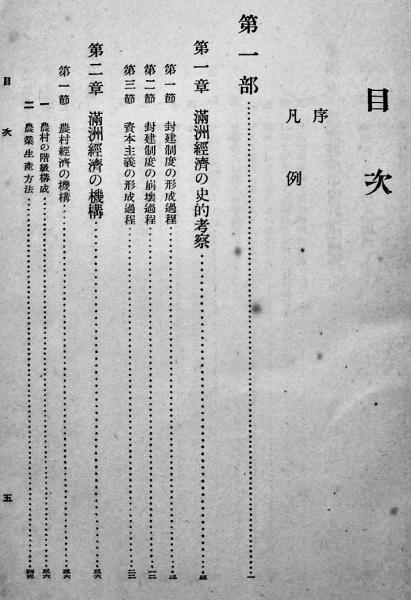 目次
序
凡例
第一部……一
第一章 滿洲經濟の史的考察……
第一節 封建制度の形成過程……
第二節 封建制度の崩壞過程……一二
第三節 資本主義の形成過程……二三
第二章 滿洲經濟の機構……三六
第一節 農村經濟の機構……三六
一 農村の階級構成……三六
二 農業生產方法……
目次
五